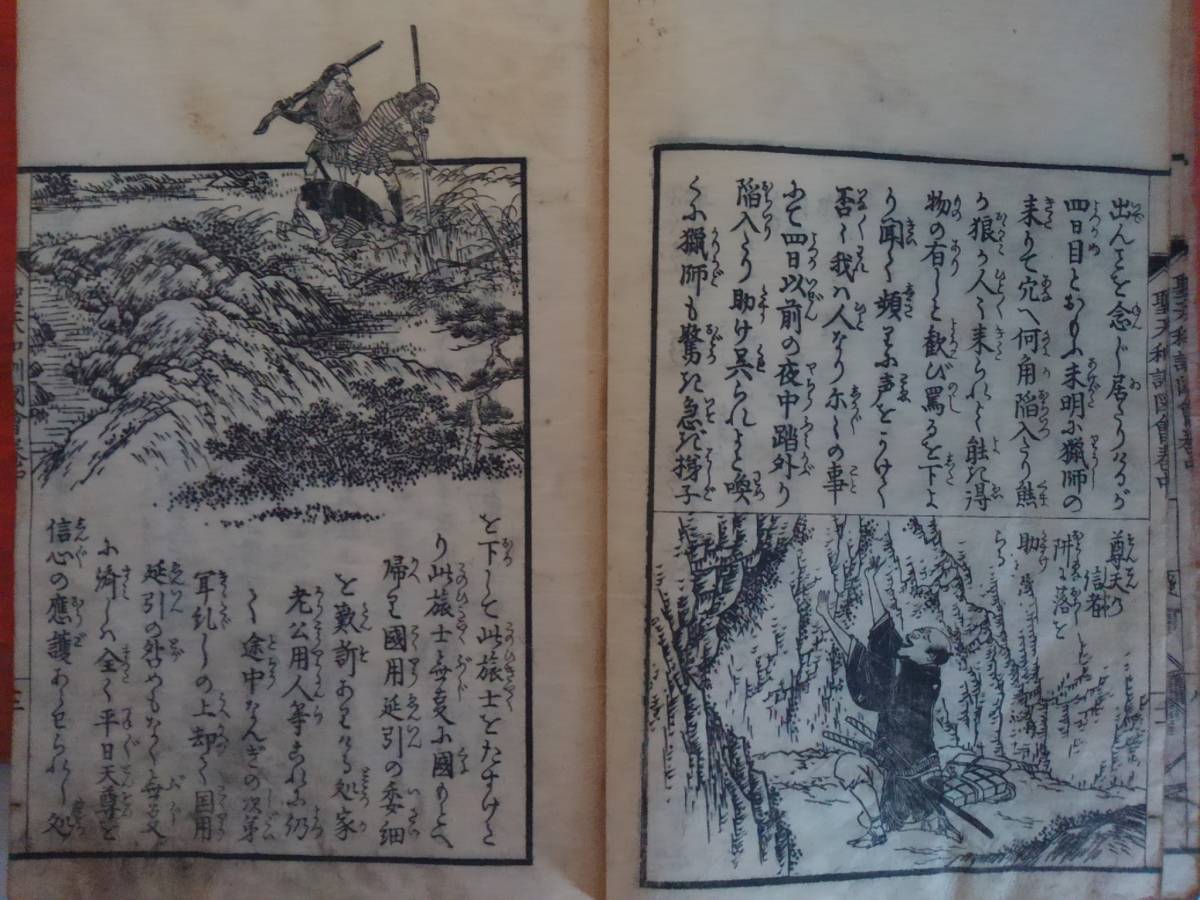 出んことを念じ居たりけるが
四日目とおもふ未明に猟師の
来りて穴へ何角陥入たり熊
か狼か人々来られよ能き得
物の有しと歓び罵るを下よ
り聞て頻りに声をかけて
否々我は人なり尓々の事
にて四日以前の夜中踏外し
陥入たり助け呉られよと喚
くに猟師も驚き急ぎ梯子
尊天の
信者
阱に落て
助けらる
を下して此旅士をたすけた
り此旅士無変に國もとへ
帰り國用延引の委細
を歎訴ありける処家
老公用人等これに仍
て途中なんぎの次第
耳糺しの上却て国用
延引の咎めもなく無異
に済しは全く平日天尊を
信心の應護あらせられし処
聖天和訓図會巻中